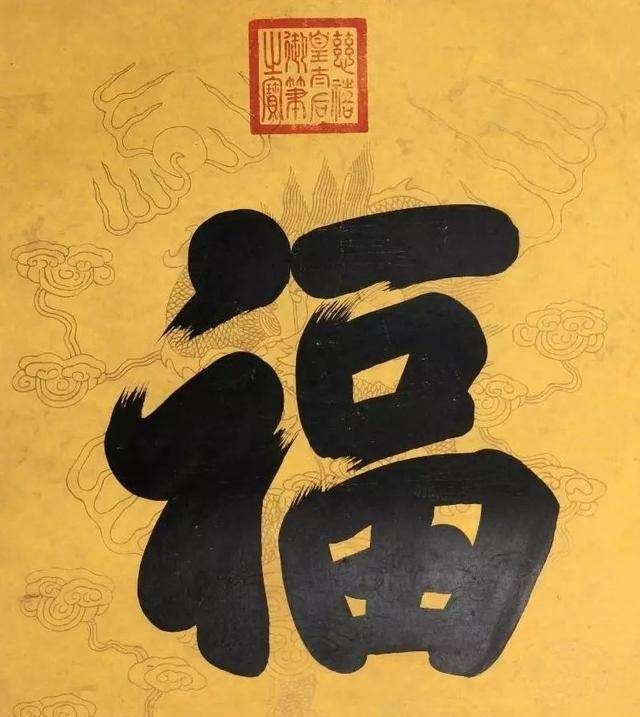 慈禧
皇太后
御筆
之寶
福